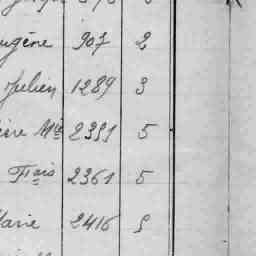 ugène 907 2
Julien 1289 3
ère Mie 2351 5
Frois 2361 5
Marie 2416 5